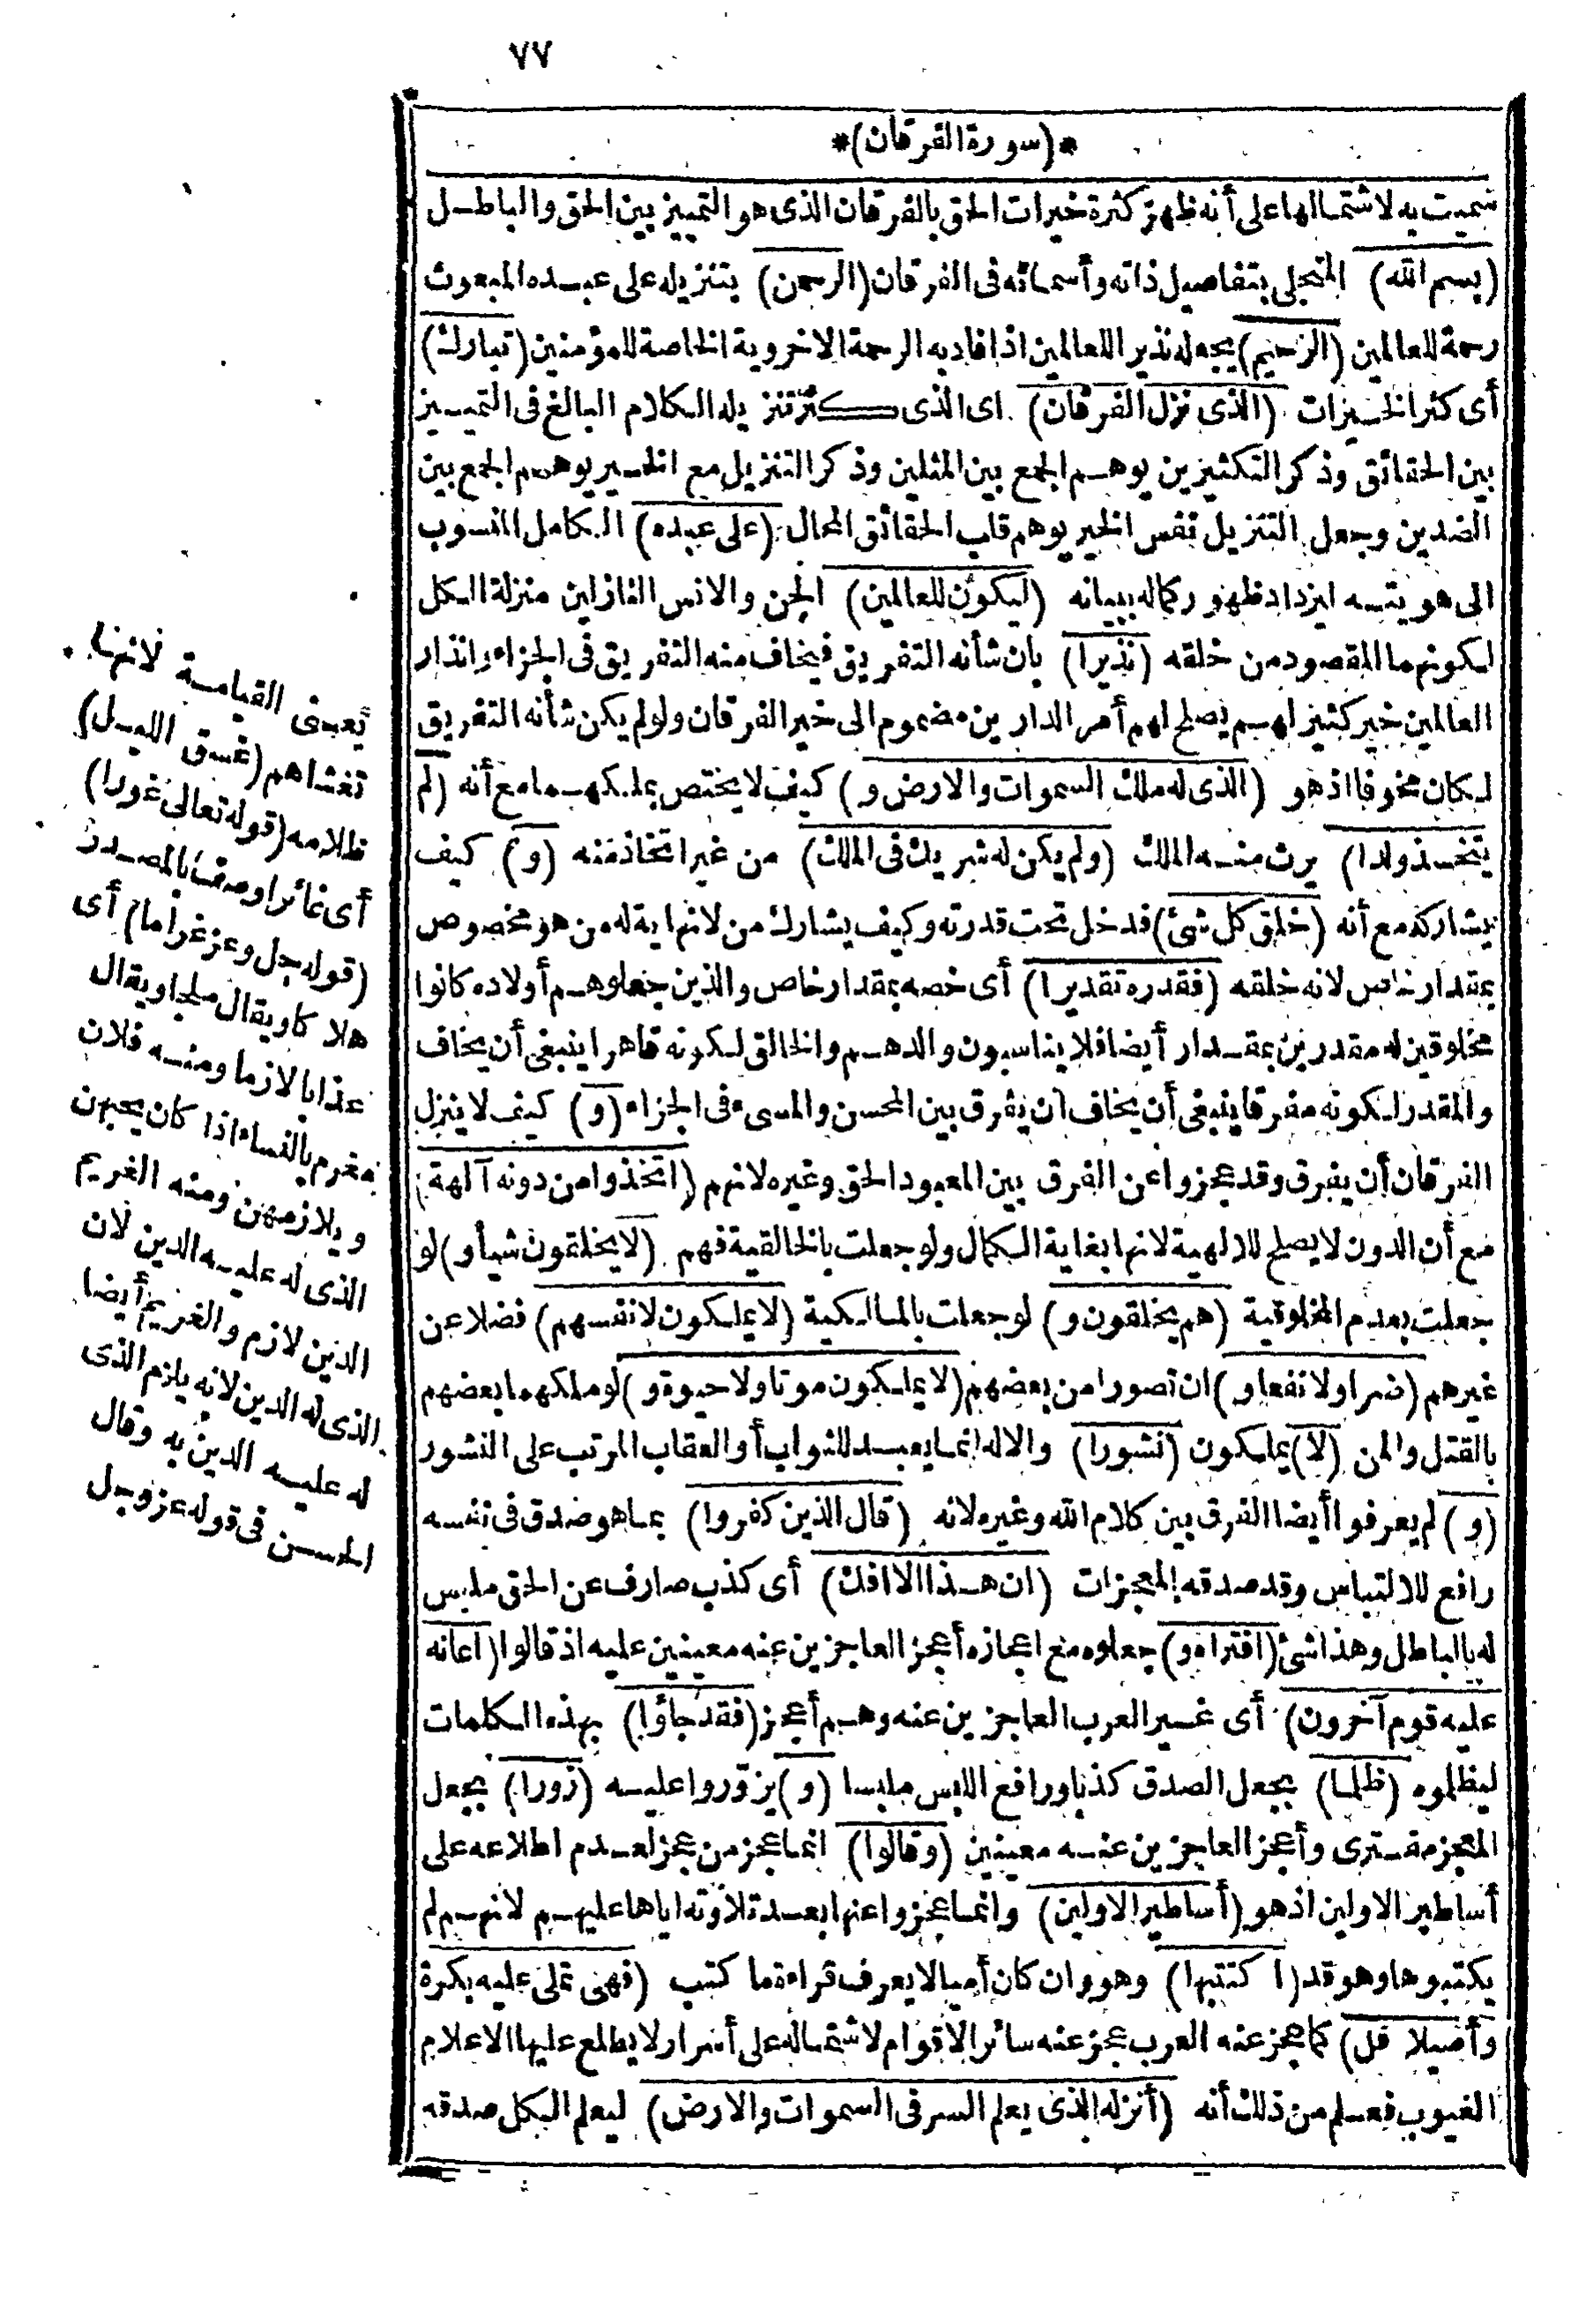 ٧٧
*(سورة الفرقان)*
سميت به لاشتمالها على أنه ظهر كثرة خيرات الحق بالفرقان الذى هو التمييز بين الحق والباطل
(بسم الله) المتجلى بتفاصيل ذاته وأسمائه فى الفرقان (الرحمن) بتنزيله على عبده المبعوث
رحمة للعالمين (الرحيم) بجعله نذيرا للعالمين اذ افاد به الرحمة الاخروية الخاصة للمؤمنين (تبارك)
أى كثر الخيرات (الذى نزل الفرقان) اى الذى كثر تنزيله الكلام البالغ فى التمييز
بين الحقائق وذكر التكثيرين يوهم الجمع بين المثلين وذكر التنزيل مع الخير يوهم الجمع بين
الضدين وجعل التنزيل نفس الخير يوهم قلب الحقائق المحال (على عبده) الكامل المنسوب
الى هويته ليزداد ظهور كماله ببيانه (ليكون للعالمين) الجن والانس النازلين منزلة الكل
لكونهما المقصود من خلقه (نذيرا) بان شأنه التفريق فيخاف منه التفريق فى الجزاء وانذار
العالمين خير كثير لهم يصلح لهم أمر الدارين مضموم الى خير الفرقان ولو لم يكن شأنه التفريق
لكان مخوفا اذ هو (الذى له ملك السموات والارض و) كيف لا يختص بملكهما مع أنه (لم
يتخذ ولدا) يرث منه الملك (ولم يكن له شريك فى الملك) من غير اتخاذ منه (و) كيف
يشاركه مع أنه (خلق كل شئ) فدخل تحت قدرته وكيف يشارك من لا نهاية له من هو مخصوص
بمقدار خاص لانه خلقه (فقدره تقديرا) أى خصه بمقدار خاص والذين جعلوهم أولاده كانوا
مخلوقين له مقدرين بمقدار أيضا فلا يناسبون والدهم والخالق لكونه قاهرا ينبغى أن يخاف
والمقدر لكونه مفرقا ينبغى أن يخاف ان يفرق بين المحسن والمسىء فى الجزاء (و) كيف لا ينزل
الفرقان أن يفرق وقد عجزوا عن الفرق بين المعبود الحق وغيره لانهم (اتخذوا من دونه آلهة)
مع أن الدون لا يصلح للالهية لانها بغاية الكمال ولو جعلت بالخالقية فهم (لا يخلقون شيأ و) لو
جعلت بعدم المخلوقية (هم يخلقون و) لو جعلت بالمالكية (لا يملكون لانفسهم) فضلا عن
غيرهم (ضرا ولا نفعا و) ان تصورا من بعضهم (لا يملكون موتا ولا حيوة و) لو ملكهما بعضهم
بالقتل والمن (لا) يملكون (نشورا) والاله انما يعبد للثواب أو العقاب المرتب على النشور
(و) لم يعرفوا أيضا الفرق بين كلام الله وغيره لانه (قال الذين كفروا) بما هو صدق فى نفسه
رافع للالتباس وقد صدقه المعجزات (ان هذا الا افك) أى كذب صارف عن الحق ملبس
له بالباطل وهذا شئ (افتراه و) جعلوه مع اعجازه أعجز العاجزين عنه معينين عليه اذ قالوا (اعانه
عليه قوم آخرون) أى غير العرب العاجزين عنه وهم أعجز (فقد جاؤا) بهذه الكلمات
ليظلموه (ظلما) بجعل الصدق كذبا ورافع اللبس ملبسا (و) يزوروا عليه (زورا) بجعل
المعجز مفترى وأعجز العاجزين عنه معينين (وقالوا) انما عجز من عجز لعدم اطلاعه على
أساطير الاولين اذ هو (أساطير الاولين) وانما عجزوا عنها بعد تلاوته اياها عليهم لانهم لم
يكتبوها وهو قد (اكتتبها) وهو وان كان أميا لا يعرف قراءة ما كتب (فهى تملى عليه بكرة
وأصيلا قل) كما عجز عنه العرب عجز عنه سائر الاقوام لاشتماله على أسرار لا يطلع عليها الاعلام
الغيوب فعلم من ذلك أنه (أنزله الذى يعلم السر فى السموات والارض) ليعلم الكل صدقه
يعنى القيامة لانها
تغشاهم (غسق الليل)
ظلامه (قوله تعالى غورا)
أى غائرا وصف بالمصدر
(قوله جل وعز غراما) أى
هلاكا ويقال ملجا ويقال
عذابا لازما ومنه فلان
مغرم بالنساء اذا كان يحبهن
ويلازمهن ومنه الغريم
الذى له عليه الدين لان
الدين لازم والغريم أيضا
الذى له الدين لانه يلزم الذى
له عليه الدين به وقال
الحسن فى قوله عز وجل